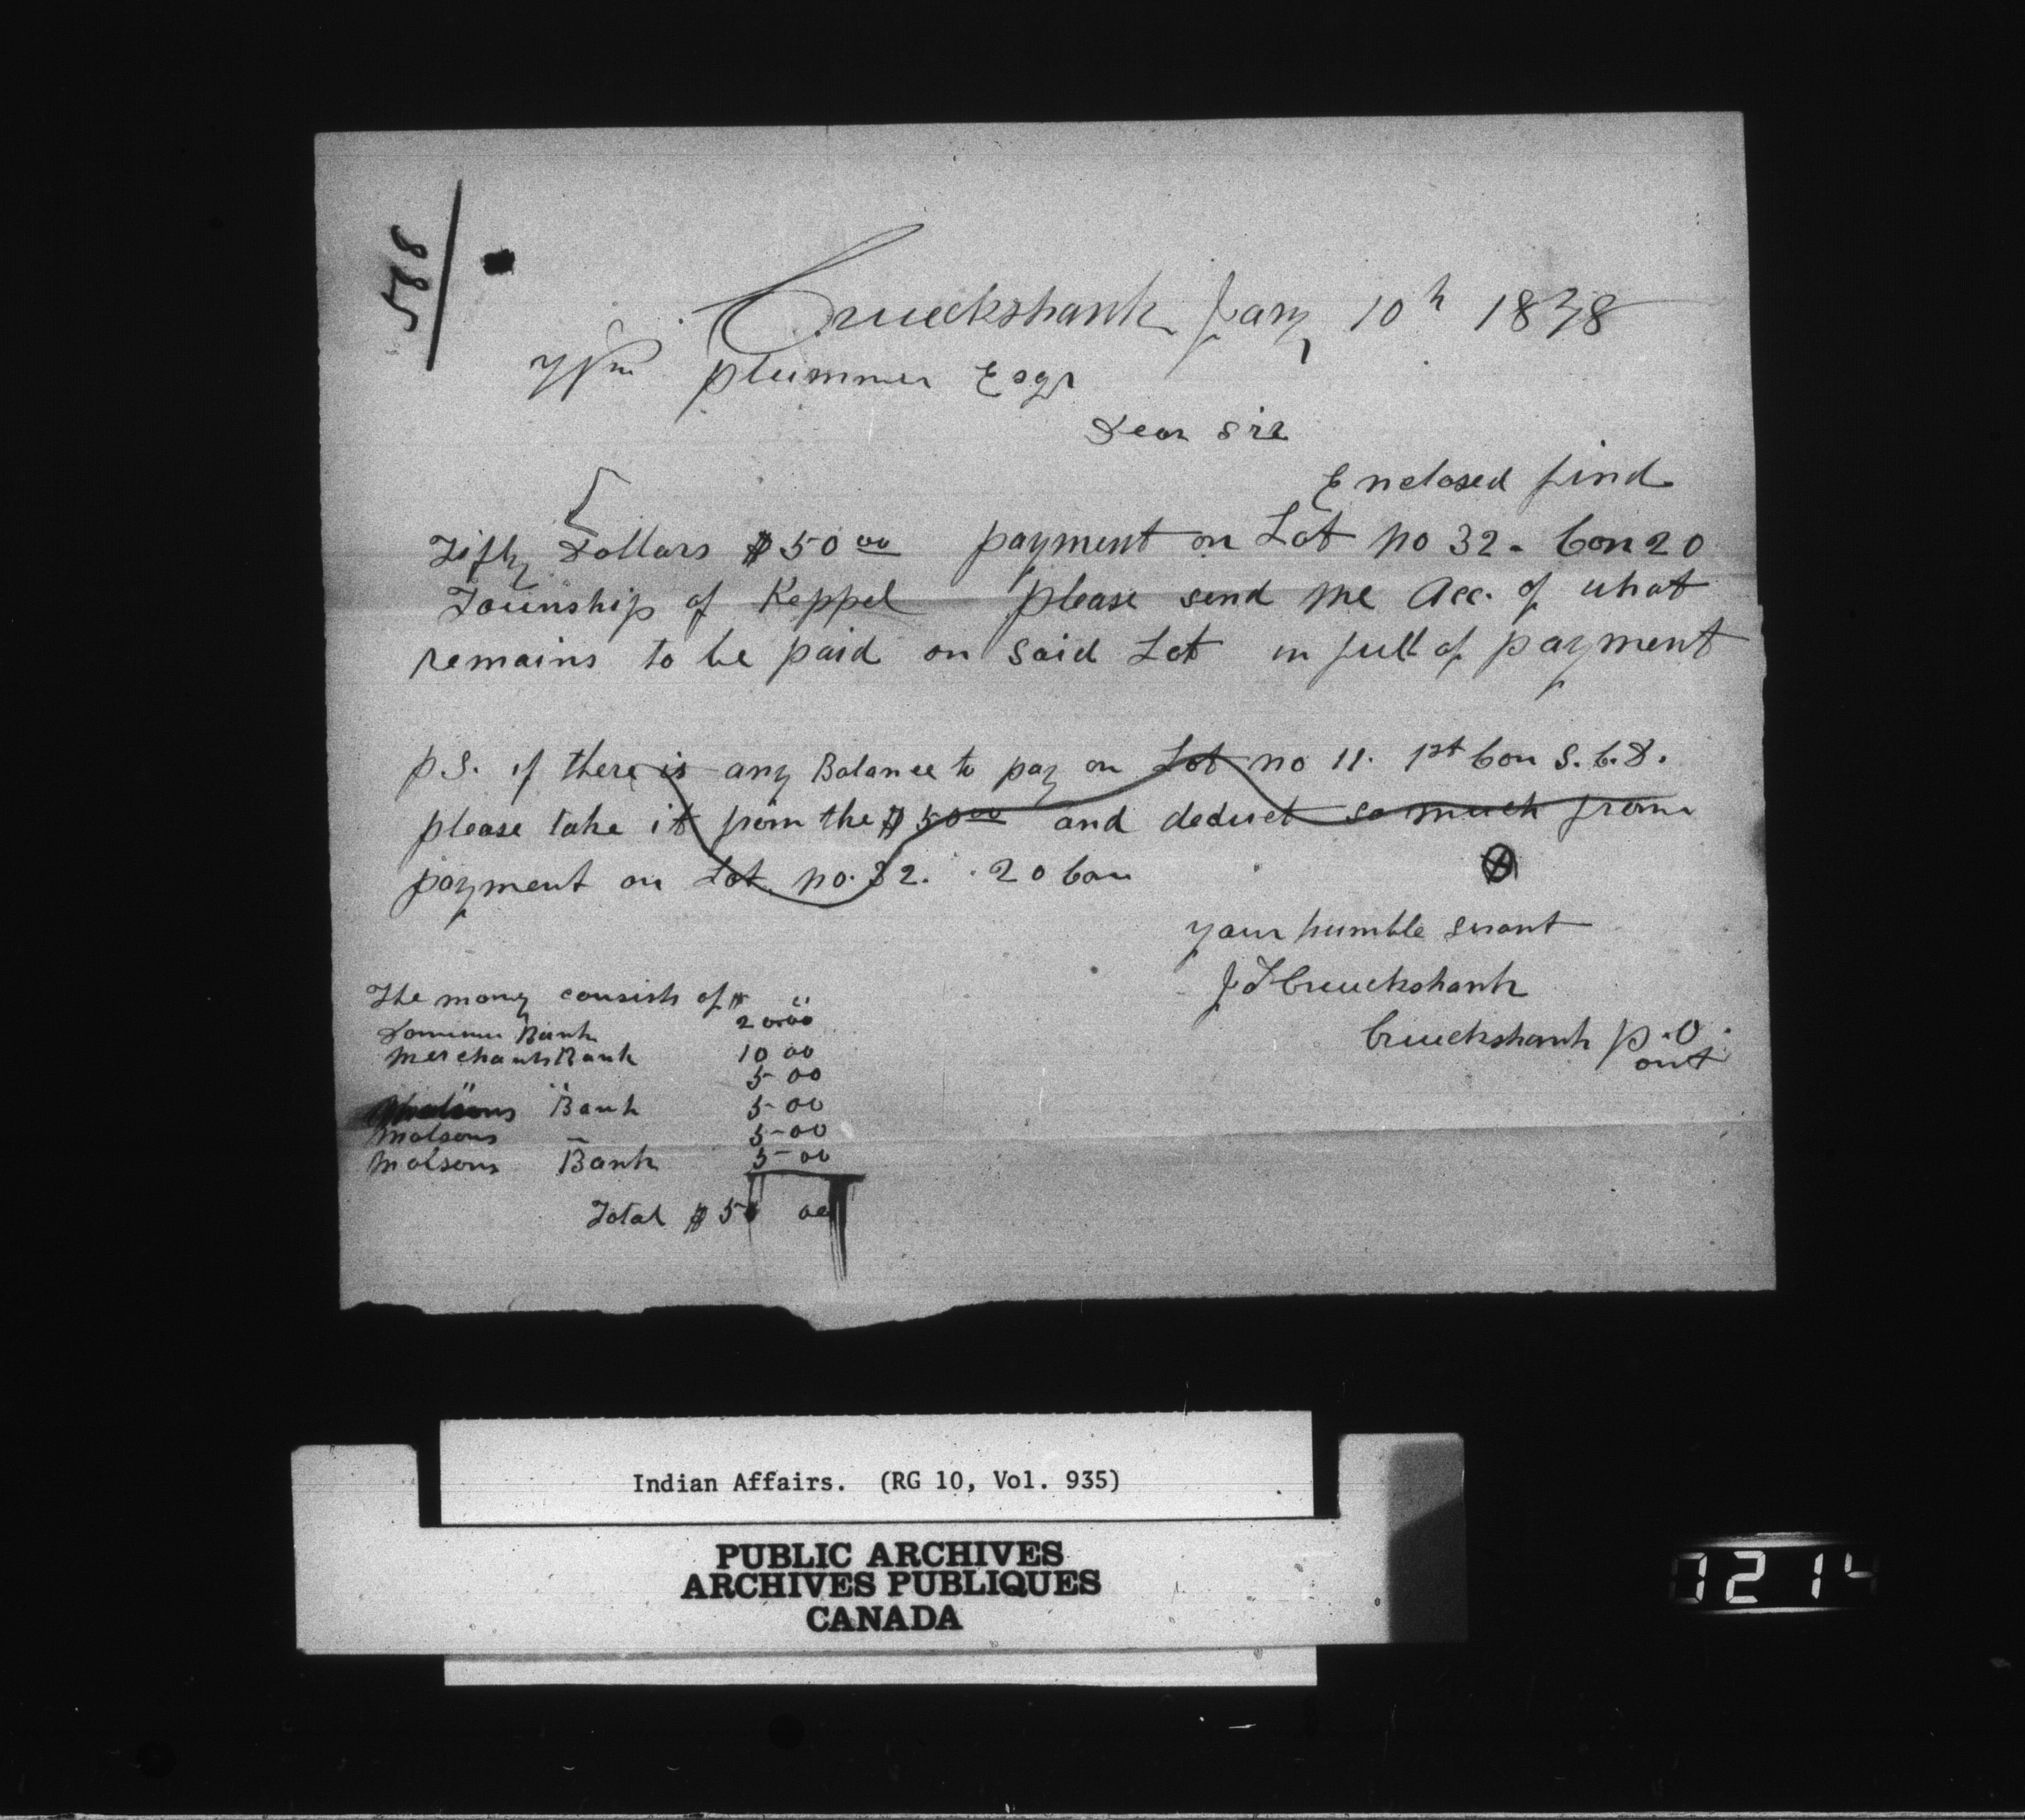 588
Cruickshank Jany 10h 1878
Wm plummer Esqr
Dear Sir
Enclosed find
Fifty Dollars $50 00 payment on Lot no 32. Con 20
Township of Keppel please send me Acc. of what
remains to be paid on Said Lot in full of payment
p.S. if there is any Balance to pay on Lot no 11. 1st Con S.C.D.
please take it from the $50 00 and deduct so much from
payment on Lot no. 32. 20 Con
your humble servant
J F Cruickshank
Cruickshank P.O.
ont
The mony consists of $
Dominion Bank 20 00
Merchants Bank 10 00
5 00
Bank 5 00
Molsons 5 00
Molsons Bank 5 00
Total $50 00
Indian Affairs. (RG 10, Vol. 935)
PUBLIC ARCHIVES
ARCHIVES PUBLIQUES
CANADA
0214